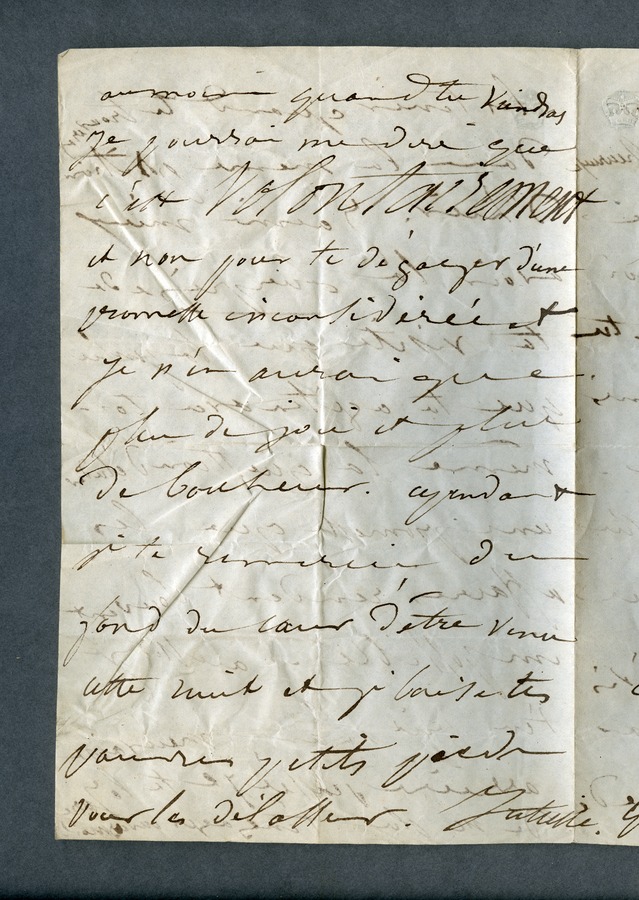 au moin quand tu viendras
je pourrai me dire que
c'est volontairement
et non pour te dégager d'une
promette inconsidérée et
je n'en aurai que
plus de joie et plus
de bonheur.
je te remercie du
fond du cœur d'être venu
cette nuit et je baise tes
pauvres petits pieds
pour les délasser. Juliette.